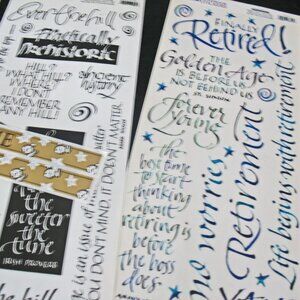 Over the hill
Practically
Prehistoric
HILL?
WHAT HILL?
WHERE?
I DON'T
REMEMBER
ANY HILL!
ancient
history
the sweeter
the
tune
IRISH PROVERB
is an issue of
YOU DON'T MIND, IT DOESN'T MATTER
FINALLY
Retired!
THE
Golden Age
IS BEFORE US
NOT BEHIND US
Forever
Young
the best time
to start
thinking
about
retiring is
before
the boss
does.
No worries
Retirement
Life begins with retirement